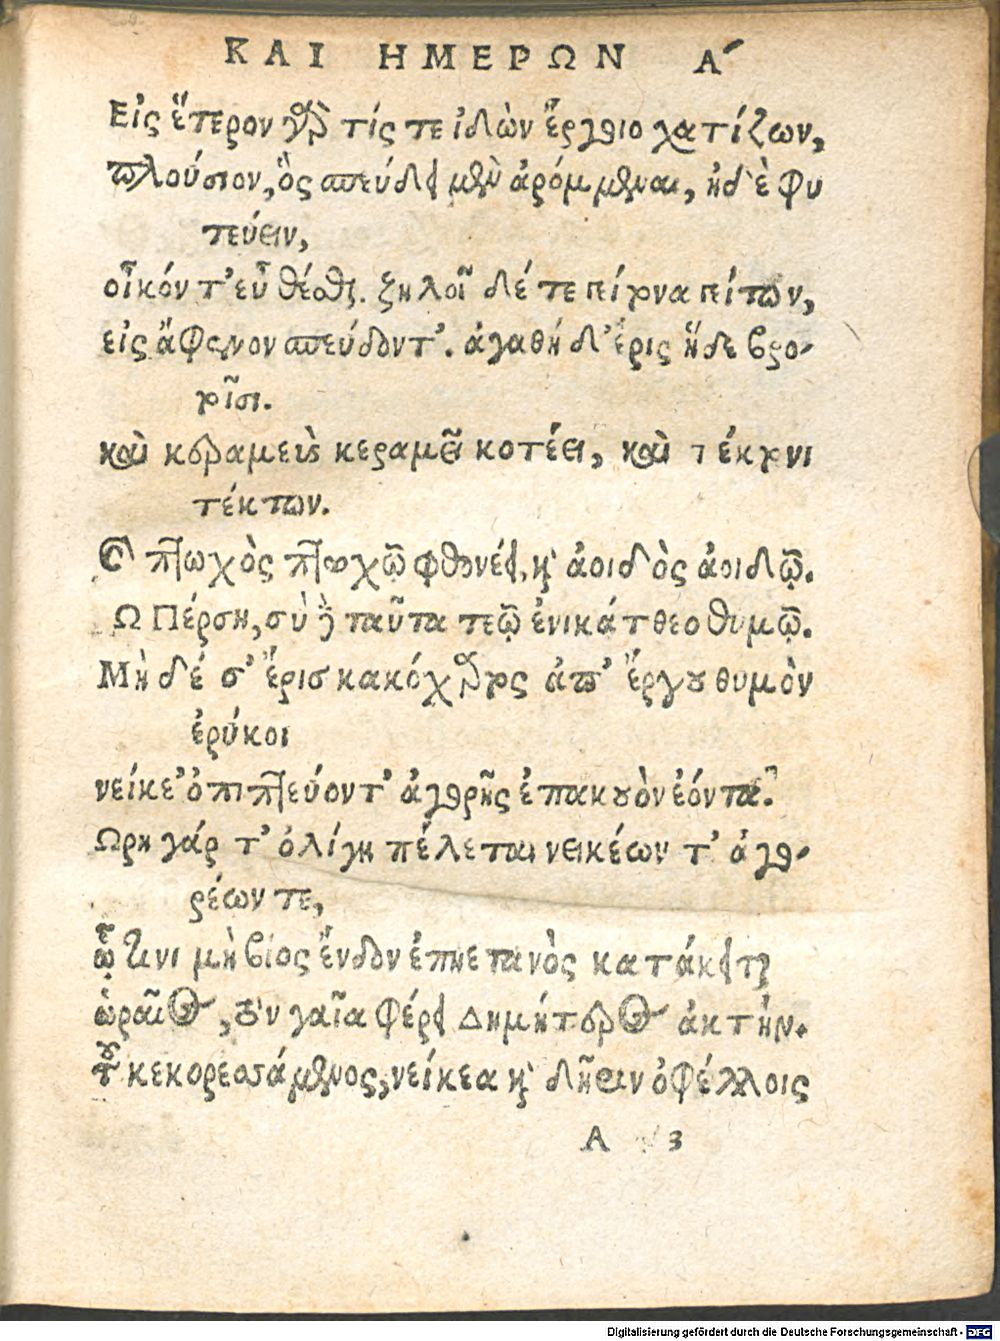 ΚΑΙ ΗΜΕΡΩΝ Α´
Εἰς ἕτερον γὰρ τίς τε ἰδὼν ἔργοιο χατίζων,
πλούσιον, ὃς σπεύδει μὲν ἀρόμμεναι, ἠδ' ὲ φυ
τεύειν,
οἶκόν τ' εὖ θέσθαι. ζηλοῖ δέ τε γείτονα γείτων,
εἰς ἄφενον σπεύδοντ'. ἀγαθὴ δ' ἔρις ἥδε βρο-
τοῖσι.
καὶ κεραμεὺς κεραμεῖ κοτέει, καὶ τέκτονι
τέκτων.
Ϲ πτωχὸς πτωχῷ φθονέει, καὶ ἀοιδὸς ἀοιδῷ.
Ω Πέρση, σὺ δὲ ταῦτα τεῷ ἐνικάτθεο θυμῷ.
Μὴ δέ σ' ἔρισ κακόχαρτος ἀπ' ἔργου θυμὸν
ἐρύκοι
νείκε' ὀπιπτεύοντ' ἀγορῆς ἐπακουὸν ἐόντα.
Ωρη γάρ τ' ὀλίγη πέλεται νεικέων τ' ἀγο-
ρέων τε,
ᾧ τινι μὴ βίος ἔνδον ἐπηετανὸς κατάκειται
ὡραῖος, τὸν γαῖα φέρει Δημήτερος ἀκτήν.
τοῦ κεκορεσσάμενος, νείκεα καὶ δῆριν ὀφέλλοις
Α 3
Digitalisierung gefördert durch die Deutsche Forschungsgemeinschaft - DFG